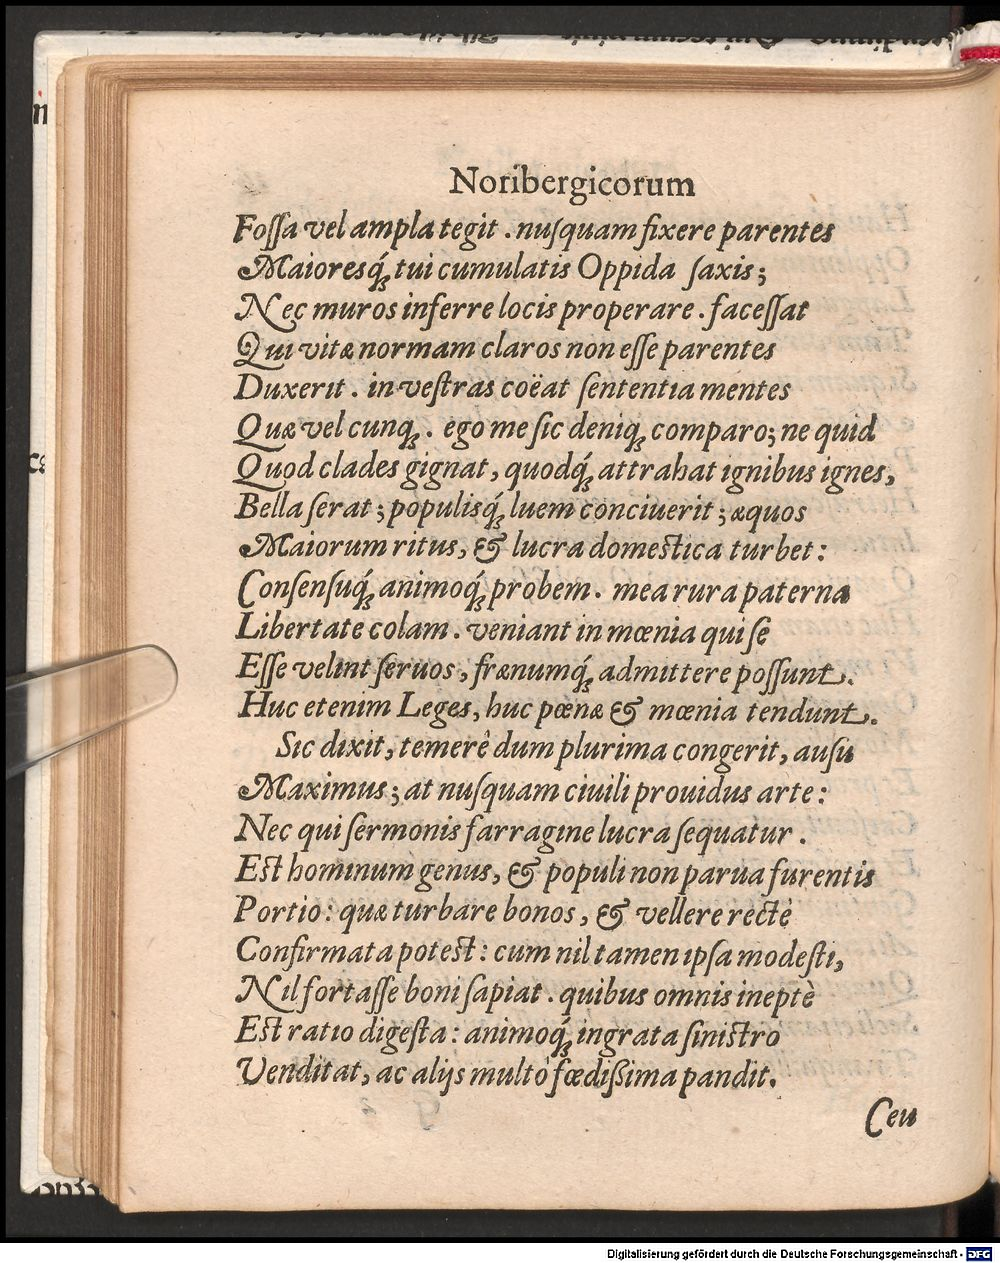 Noribergicorum
Foſſa vel ampla tegit . nuſquam fixere parentes
Maioresq́; tui cumulatis Oppida ſaxis;
Nec muros inferre locis properare . faceſſat
Qui vitæ normam claros non eſſe parentes
Duxerit . in veſtras coëat ſententia mentes
Quæ vel cunq; . ego me ſic deniq; comparo; ne quid
Quod clades gignat, quodq́; attrahat ignibus ignes,
Bella ſerat ; populisq́; luem conciuerit ; æquos
Maiorum ritus, & lucra domeſtica turbet :
Conſenſuq́; animoq́; probem . mea rura paterna
Libertate colam . veniant in mœnia qui ſe
Eſſe velint ſeruos , frænumq́; admittere poſſunt .
Huc etenim Leges, huc pœnæ & mœnia tendunt .
Sic dixit, temerê dum plurima congerit, auſu
Maximus ; at nuſquam ciuili prouidus arte :
Nec qui ſermonis farragine lucra ſequatur .
Eſt hominum genus, & populi non parua furentis
Portio : quæ turbare bonos , & vellere rectè
Confirmata poteſt : cum nil tamen ipſa modeſti,
Nil fortaſſe boni ſapiat . quibus omnis ineptè
Eſt ratio digeſta : animoq́; ingrata ſiniſtro
Venditat, ac alijs multò fœdißima pandit.
Ceu
Digitalisierung gefördert durch die Deutsche Forschungsgemeinschaft - DFG